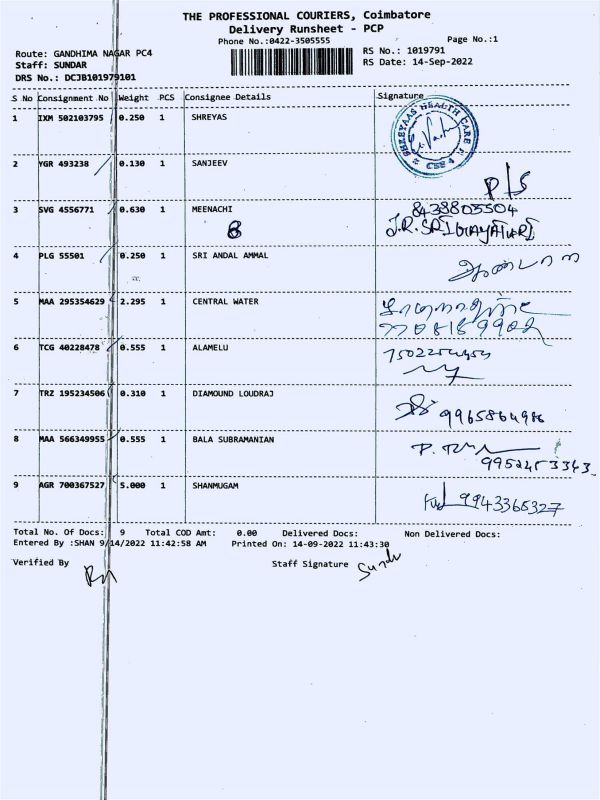 THE PROFESSIONAL COURIERS, Coimbatore
Delivery Runsheet - PCP
Phone No.:0422-3505555
Page No.:1
Route: GANDHIMA NAGAR PC4
RS No.: 1019791
Staff: SUNDAR
RS Date: 14-Sep-2022
DRS No.: DCJB101979101
S No Consignment No Weight PCS Consignee Details Signature
1 IXM 502103795 0.250 1 SHREYAS
SHREYAAS HEALTH CARE
CBE 4
2 YGR 493238 0.130 1 SANJEEV
3 SVG 4556771 0.630 1 MEENACHI
8438803504
8 J.R. SRI GAYATHRI
4 PLG 55501 0.250 1 SRI ANDAL AMMAL
ஆண்டாள
5 MAA 295354629 2.295 1 CENTRAL WATER
6 TCG 40228478 0.555 1 ALAMELU
7 TRZ 195234506 0.310 1 DIAMOUND LOUDRAJ
9965864986
8 MAA 566349955 0.555 1 BALA SUBRAMANIAN
9952453343
9 AGR 700367527 5.000 1 SHANMUGAM
9943365327
Total No. Of Docs: 9 Total COD Amt: 0.00 Delivered Docs: Non Delivered Docs:
Entered By :SHAN 9/14/2022 11:42:58 AM Printed On: 14-09-2022 11:43:30
Verified By Staff Signature Sundr